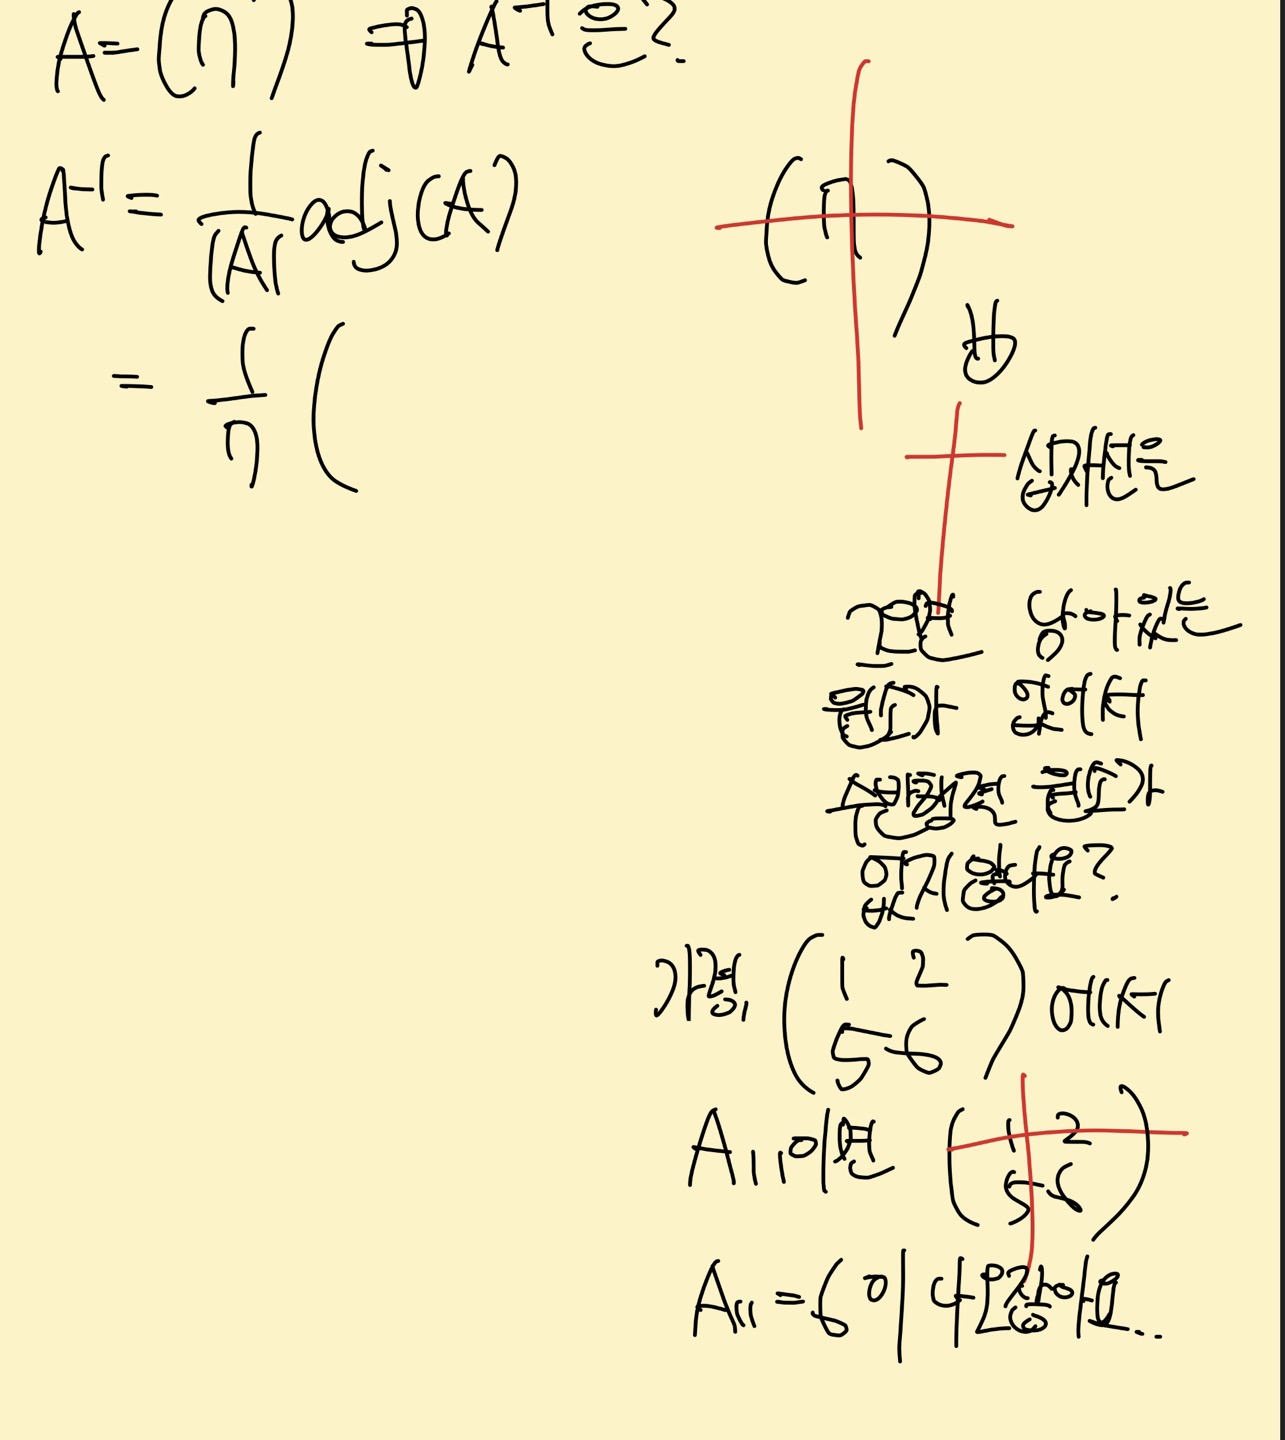 A=(7) ⇒ A⁻¹은?
A⁻¹ = 1/|A| adj(A)
= 1/7 (
(7)
십자선을
그으면 남아있는
원소가 없어서
수반행렬 원소가
없지 않나요?
가령, (1 2
5 6) 에서
A₁₁이면 (1 2
5 6)
A₁₁=6이 나오잖아요..